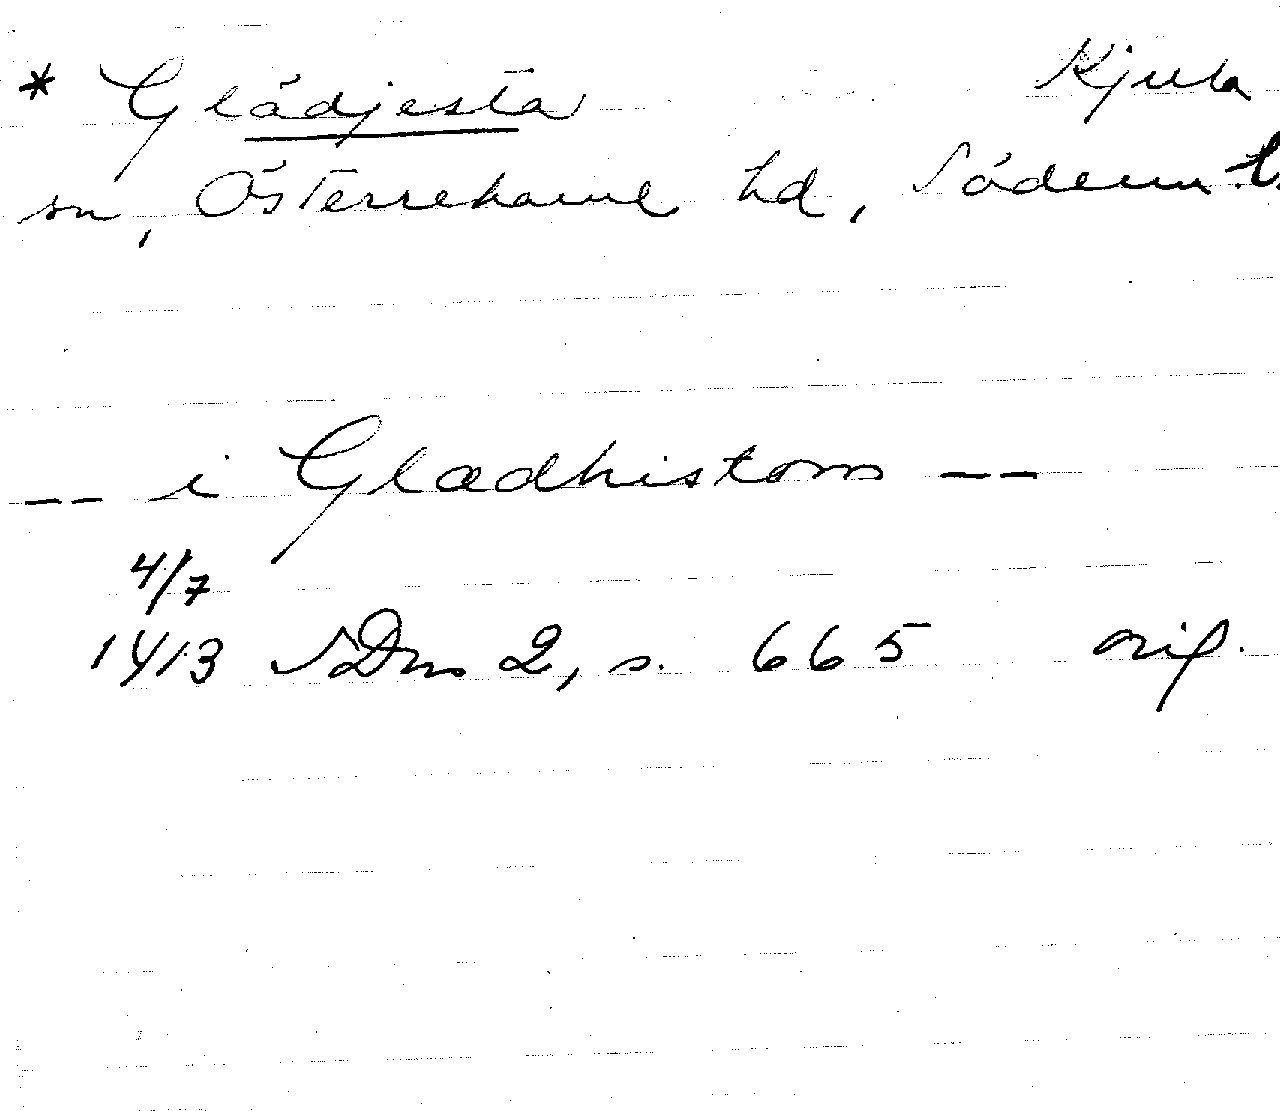 * Glädjesta Kjula
sn, Österrekarne hd, Söderm. l.
-- i Gladhistom --
4/7
1413 SDns 2, s. 665 orig.